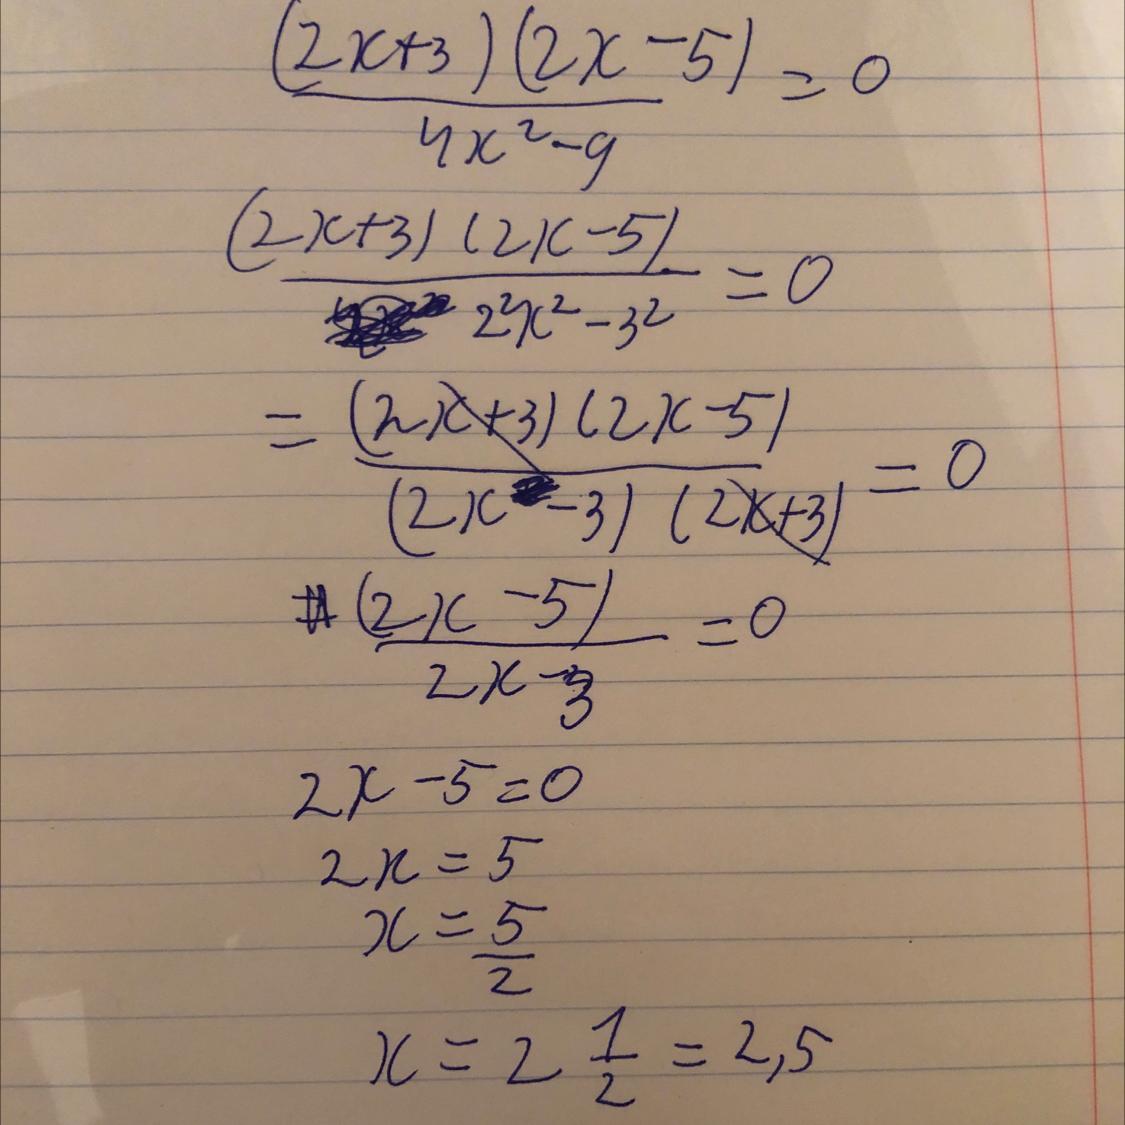 (2x+3)(2x-5)/4x²-9 = 0
(2x+3)(2x-5)/2²x²-3² = 0
= (2x+3)(2x-5)/(2x-3)(2x+3) = 0
(2x-5)/2x-3 = 0
2x-5=0
2x=5
x=5/2
x=2 1/2=2,5